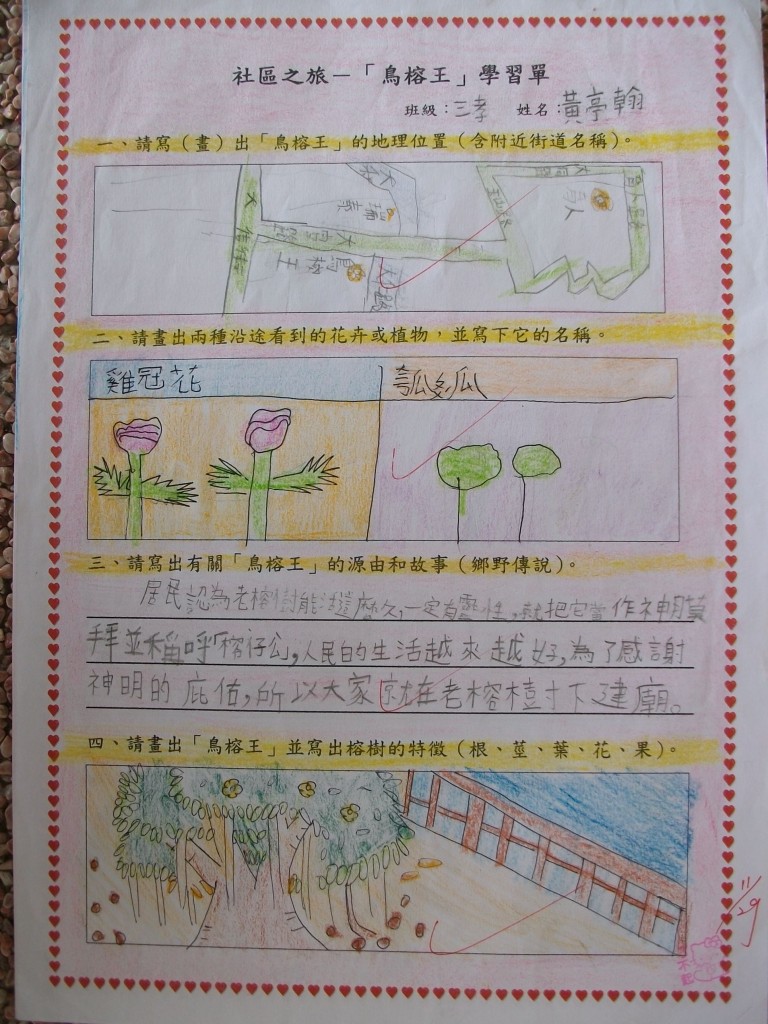 社區之旅－「鳥榕王」學習單
班級：三孝 姓名：黃亭翰
一、請寫（畫）出「鳥榕王」的地理位置（含附近街道名稱）。
鳥榕王
二、請畫出兩種沿途看到的花卉或植物，並寫下它的名稱。
雞冠花
三、請寫出有關「鳥榕王」的源由和故事（鄉野傳說）。
居民認為老榕樹能活這麼久，一定有靈性，就把它當作神明莫
拜並稱呼「榕仔公」，人民的生活越來越好，為了感謝
神明的庇佑，所以大家就在老榕樹下建廟。
四、請畫出「鳥榕王」並寫出榕樹的特徵（根、莖、葉、花、果）。
11/29